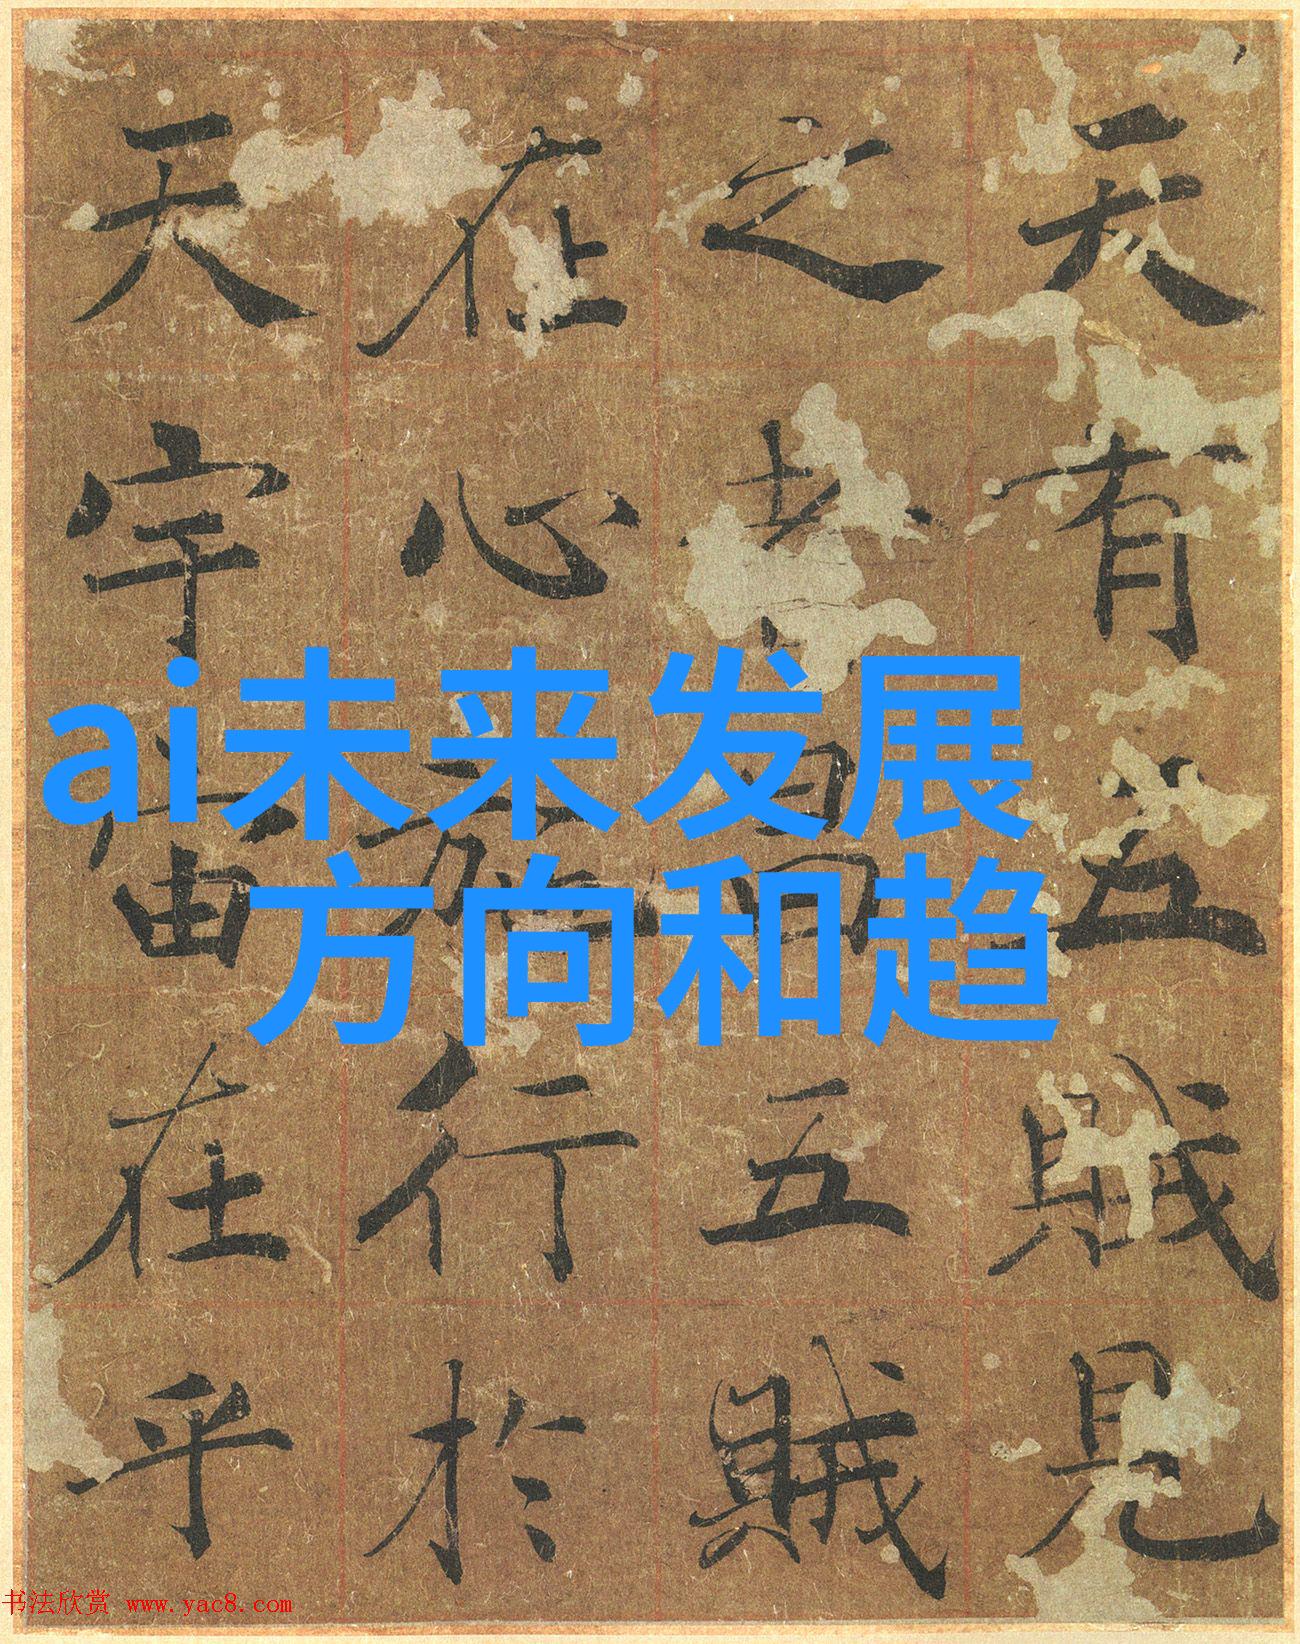 天有五賊見
之昌五賊
在心施行於
天宇宙在乎
ai未来发展
方向和趋
书法欣赏 www.yac8.com